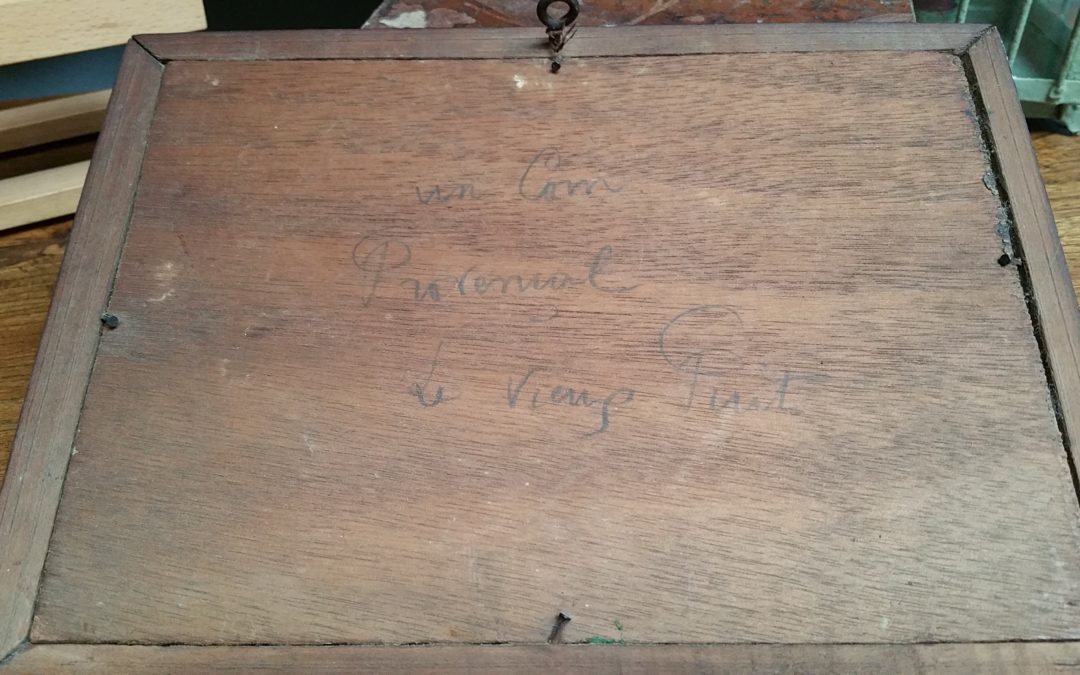 un Com
Provençal
Le vieux Puit